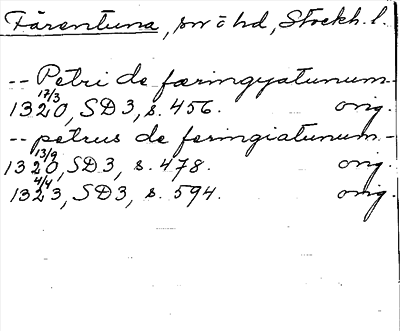 Färentuna, sn o hd, Stockh. l.
-- Petri de færingyatunum -
17/3
1320, SD3, s. 456. orig.
-- petrus de feringiatunum -
13/9
1320, SD3, s. 478. orig.
4/4
1323, SD3, s. 594. orig.